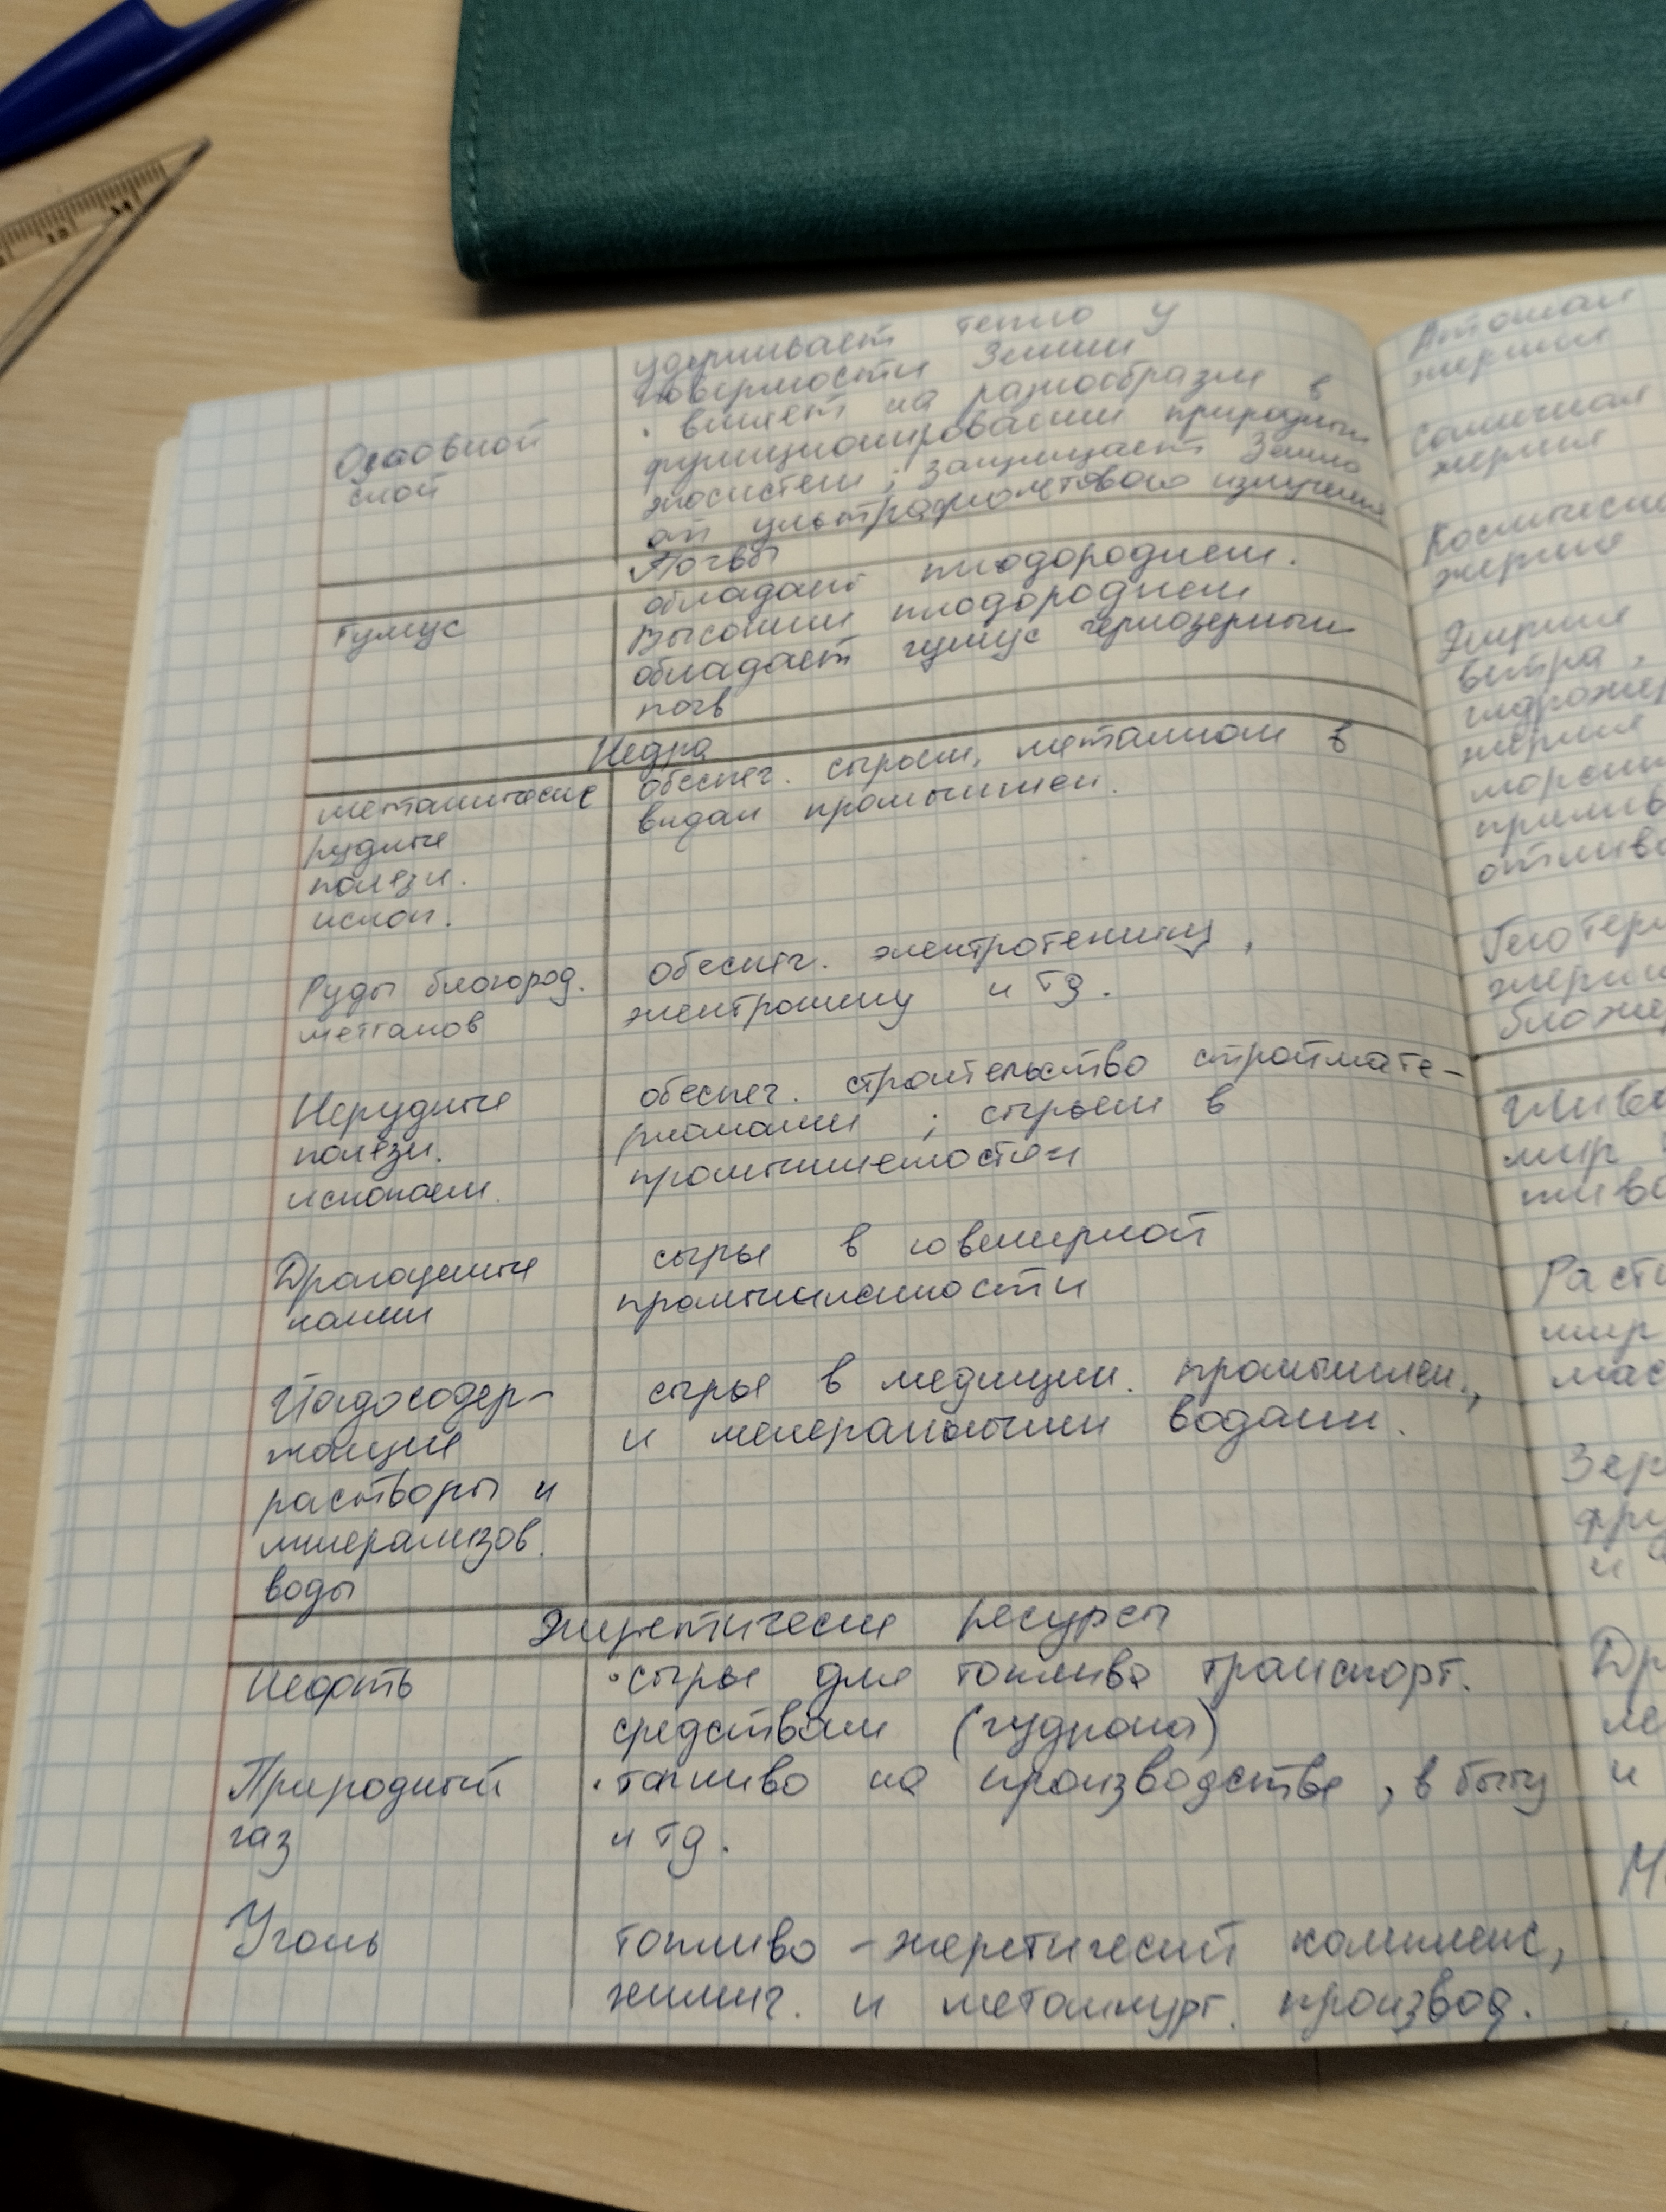 удерживает тепло у
поверхности Земли
Озоновой
слой
· влияет на разнообразие в
функционировании природных
экосистем; защищает Землю
от ультрафиолетового излучения
Почвы
Гумус
обладает плодородием.
Высоким плодородием
обладает гумус черноземных
почв
Недра
металлические
рудные
полезн.
ископ.
обеспеч. сырьем, металлом в
видах промышлен.
Руды благород.
металлов
обеспеч. электротехнику,
электронику и тд.
Нерудные
полезн.
ископаем.
обеспеч. строительство строймате-
риалами ; сырьем в
промышленности
Драгоценные
камни
сырье в ювелирной
промышленности
Йодосодер-
жащие
растворы и
минерализов.
воды
сырье в медицин. промышлен.,
и минеральными водами.
Энергетические ресурсы
Нефть
· сырье для топлива транспорт.
средствам (гудрона)
Природный
газ
· топливо на производстве, в быту
и тд.
Уголь
топливо - энергетический комплекс,
химич. и металлург. производ.
Атомная
энергия
Солнечная
энергия
энергия
Энергия
ветра,
энергия
Зер
и